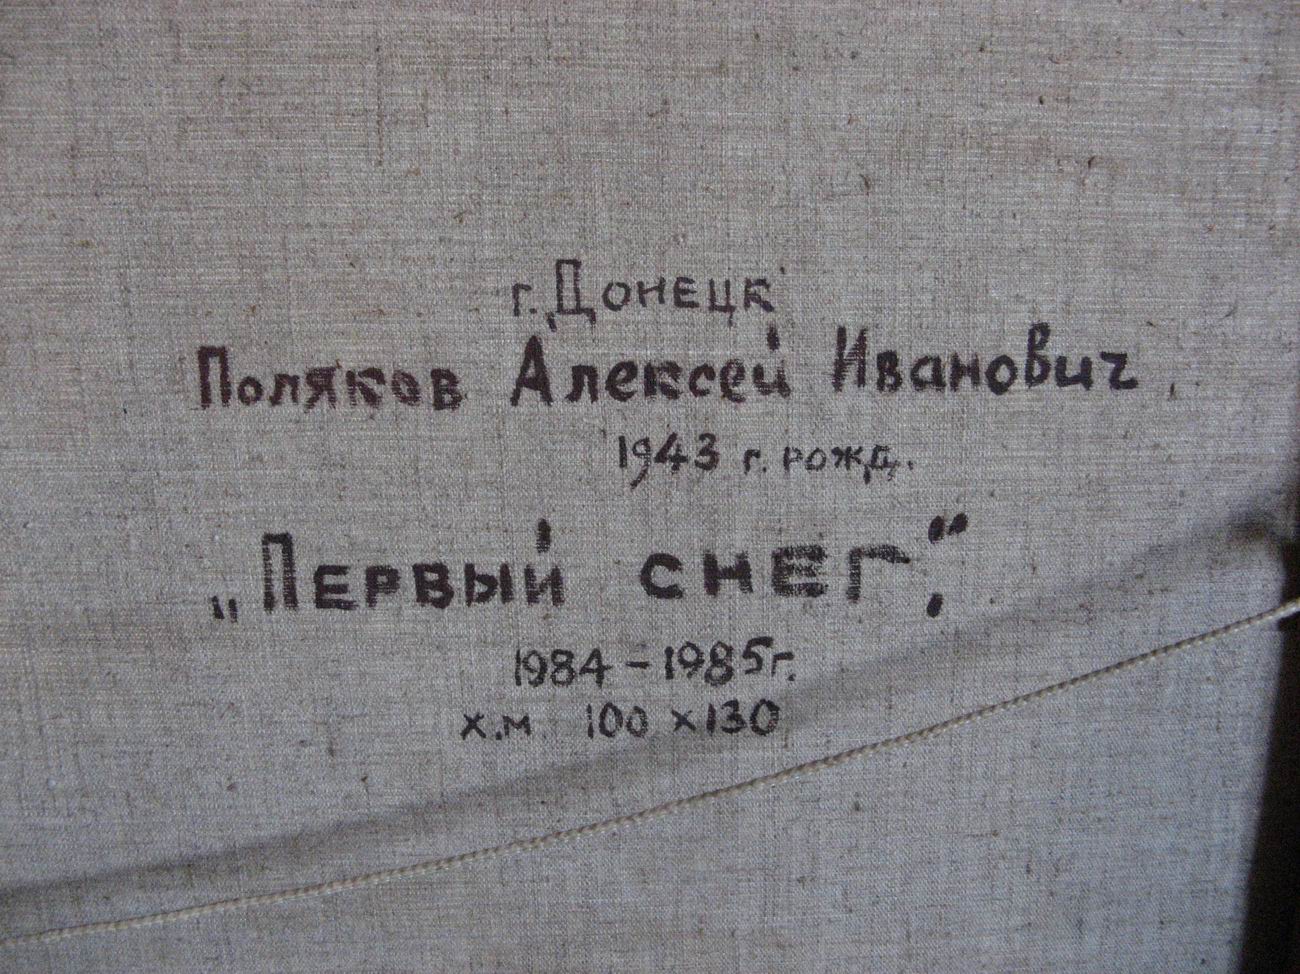 г. Донецк
Поляков Алексей Иванович,
1943 г. рожд.
„Первый снег“.
1984 – 1985г.
х.м 100 х 130